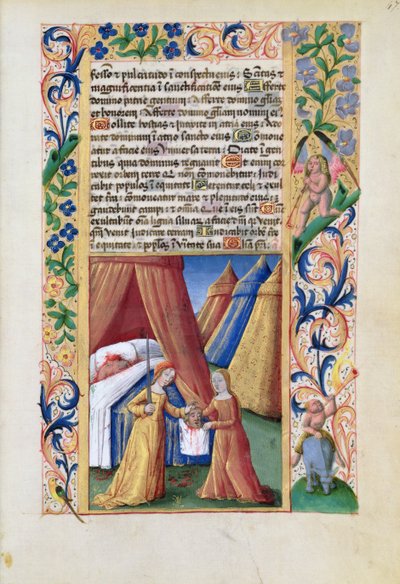 fessio et pulcritudo ī conspectu eius: Sāctitas ⁊
magnificentia ī sanctificatione eius Afferte
domino patrie gentium Afferte domino gl̄iam
et honorem Afferte domino gloriam nomini ei⁹
Tollite hostias et ītroite in atria eius Ado
rate dominum ī atrio sancto eius Commoue
atur a facie eius vniuersa terra Dicite ī gen
tibus quia dominus regnauit Et enim cor
rexit orbem terre qui non cōmouebitur: Iudi
cabit populos ī equitate Letentur celi et exul
tet terra: cōmoueatur mare et plenitudo eius:
gaudebunt campi et omīa que ī eis sūt Tūc
exultabūt omīa ligna siluarum a facie dn̄i
venit iudicare terram Iudicabit orbē terre
ī equitate et populos ī veritate sua Gloria
47